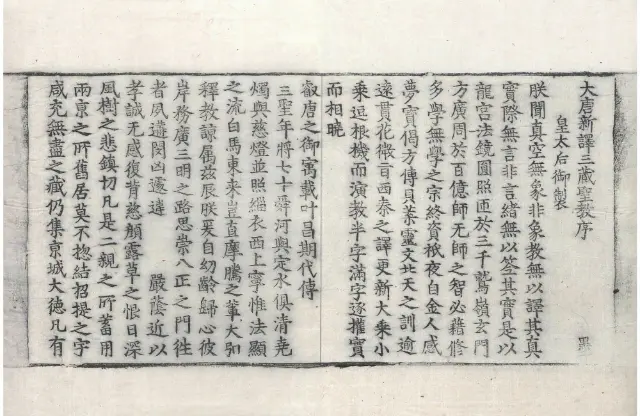 大唐新譯三蔵聖教序
皇太后御製
朕聞真空無象非象教無以譯其真
實際無言非言緒無以筌其實是以
龍宮法鏡圓照匝於三千鷲嶺玄門
方廣周於百億師无師之智必藉修
多學無學之宗終資祇夜自金人感
夢寶偈方傳貝葉靈文北天之訓逾
遠貫花微言西秦之譯更新大乗小
乗逗根機而演教半字滿字逐權實
而相曉
叡唐之御寓載叶昌期代傳
三聖年將七十舜河與定水俱清堯
燭與慈燈並照緇衣西上寧惟法顯
之流白馬東来豈直摩騰之輩大弘
釋教諒属兹辰朕爰自幼齡歸心彼
岸務廣三明之路思崇八正之門徃
者夙遭閔凶遽違 嚴蔭近以
孝誠无感復背慈顔露草之恨日深
風樹之悲鎮切凡是二親之所蓄用
兩京之所舊居莫不捴結招提之宇
咸充無盡之蔵仍集京城大德凡有